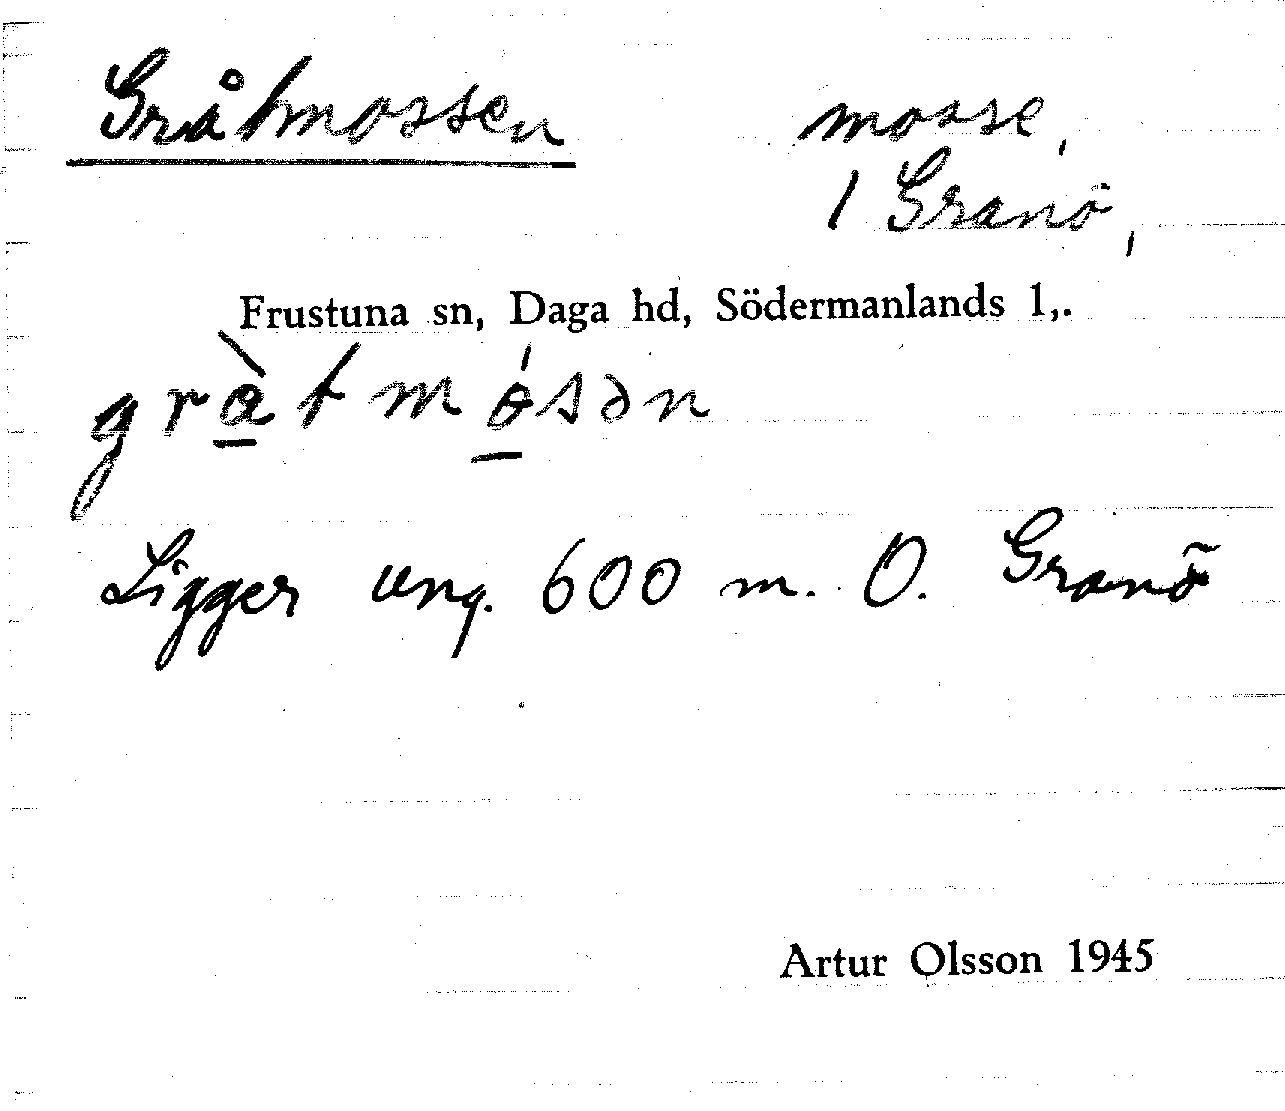 Gråtmossen mosse,
1 Granö,
Frustuna sn, Daga hd, Södermanlands l,.
gràtmósən
Ligger ung. 600 m. O. Granö
Artur Olsson 1945